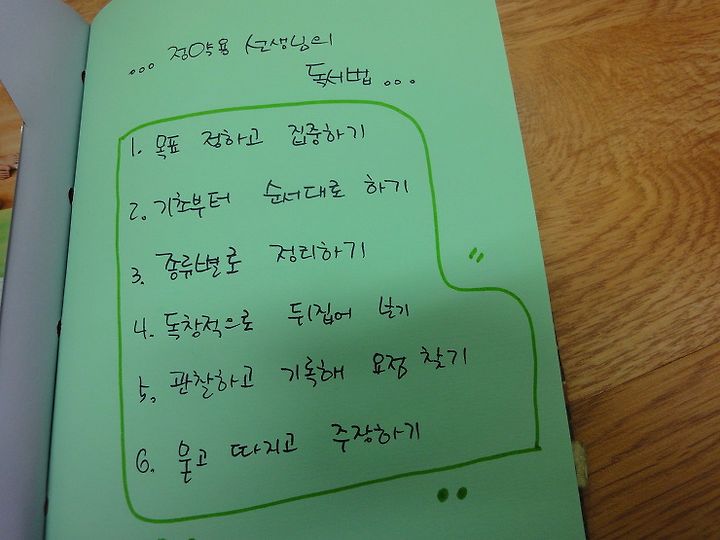 ... 정약용 선생님의
독서법 ...
1. 목표 정하고 집중하기
2. 기초부터 순서대로 하기
3. 종류별로 정리하기
4. 독창적으로 뒤집어 보기
5. 관찰하고 기록해 요정 찾기
6. 묻고 따지고 주장하기